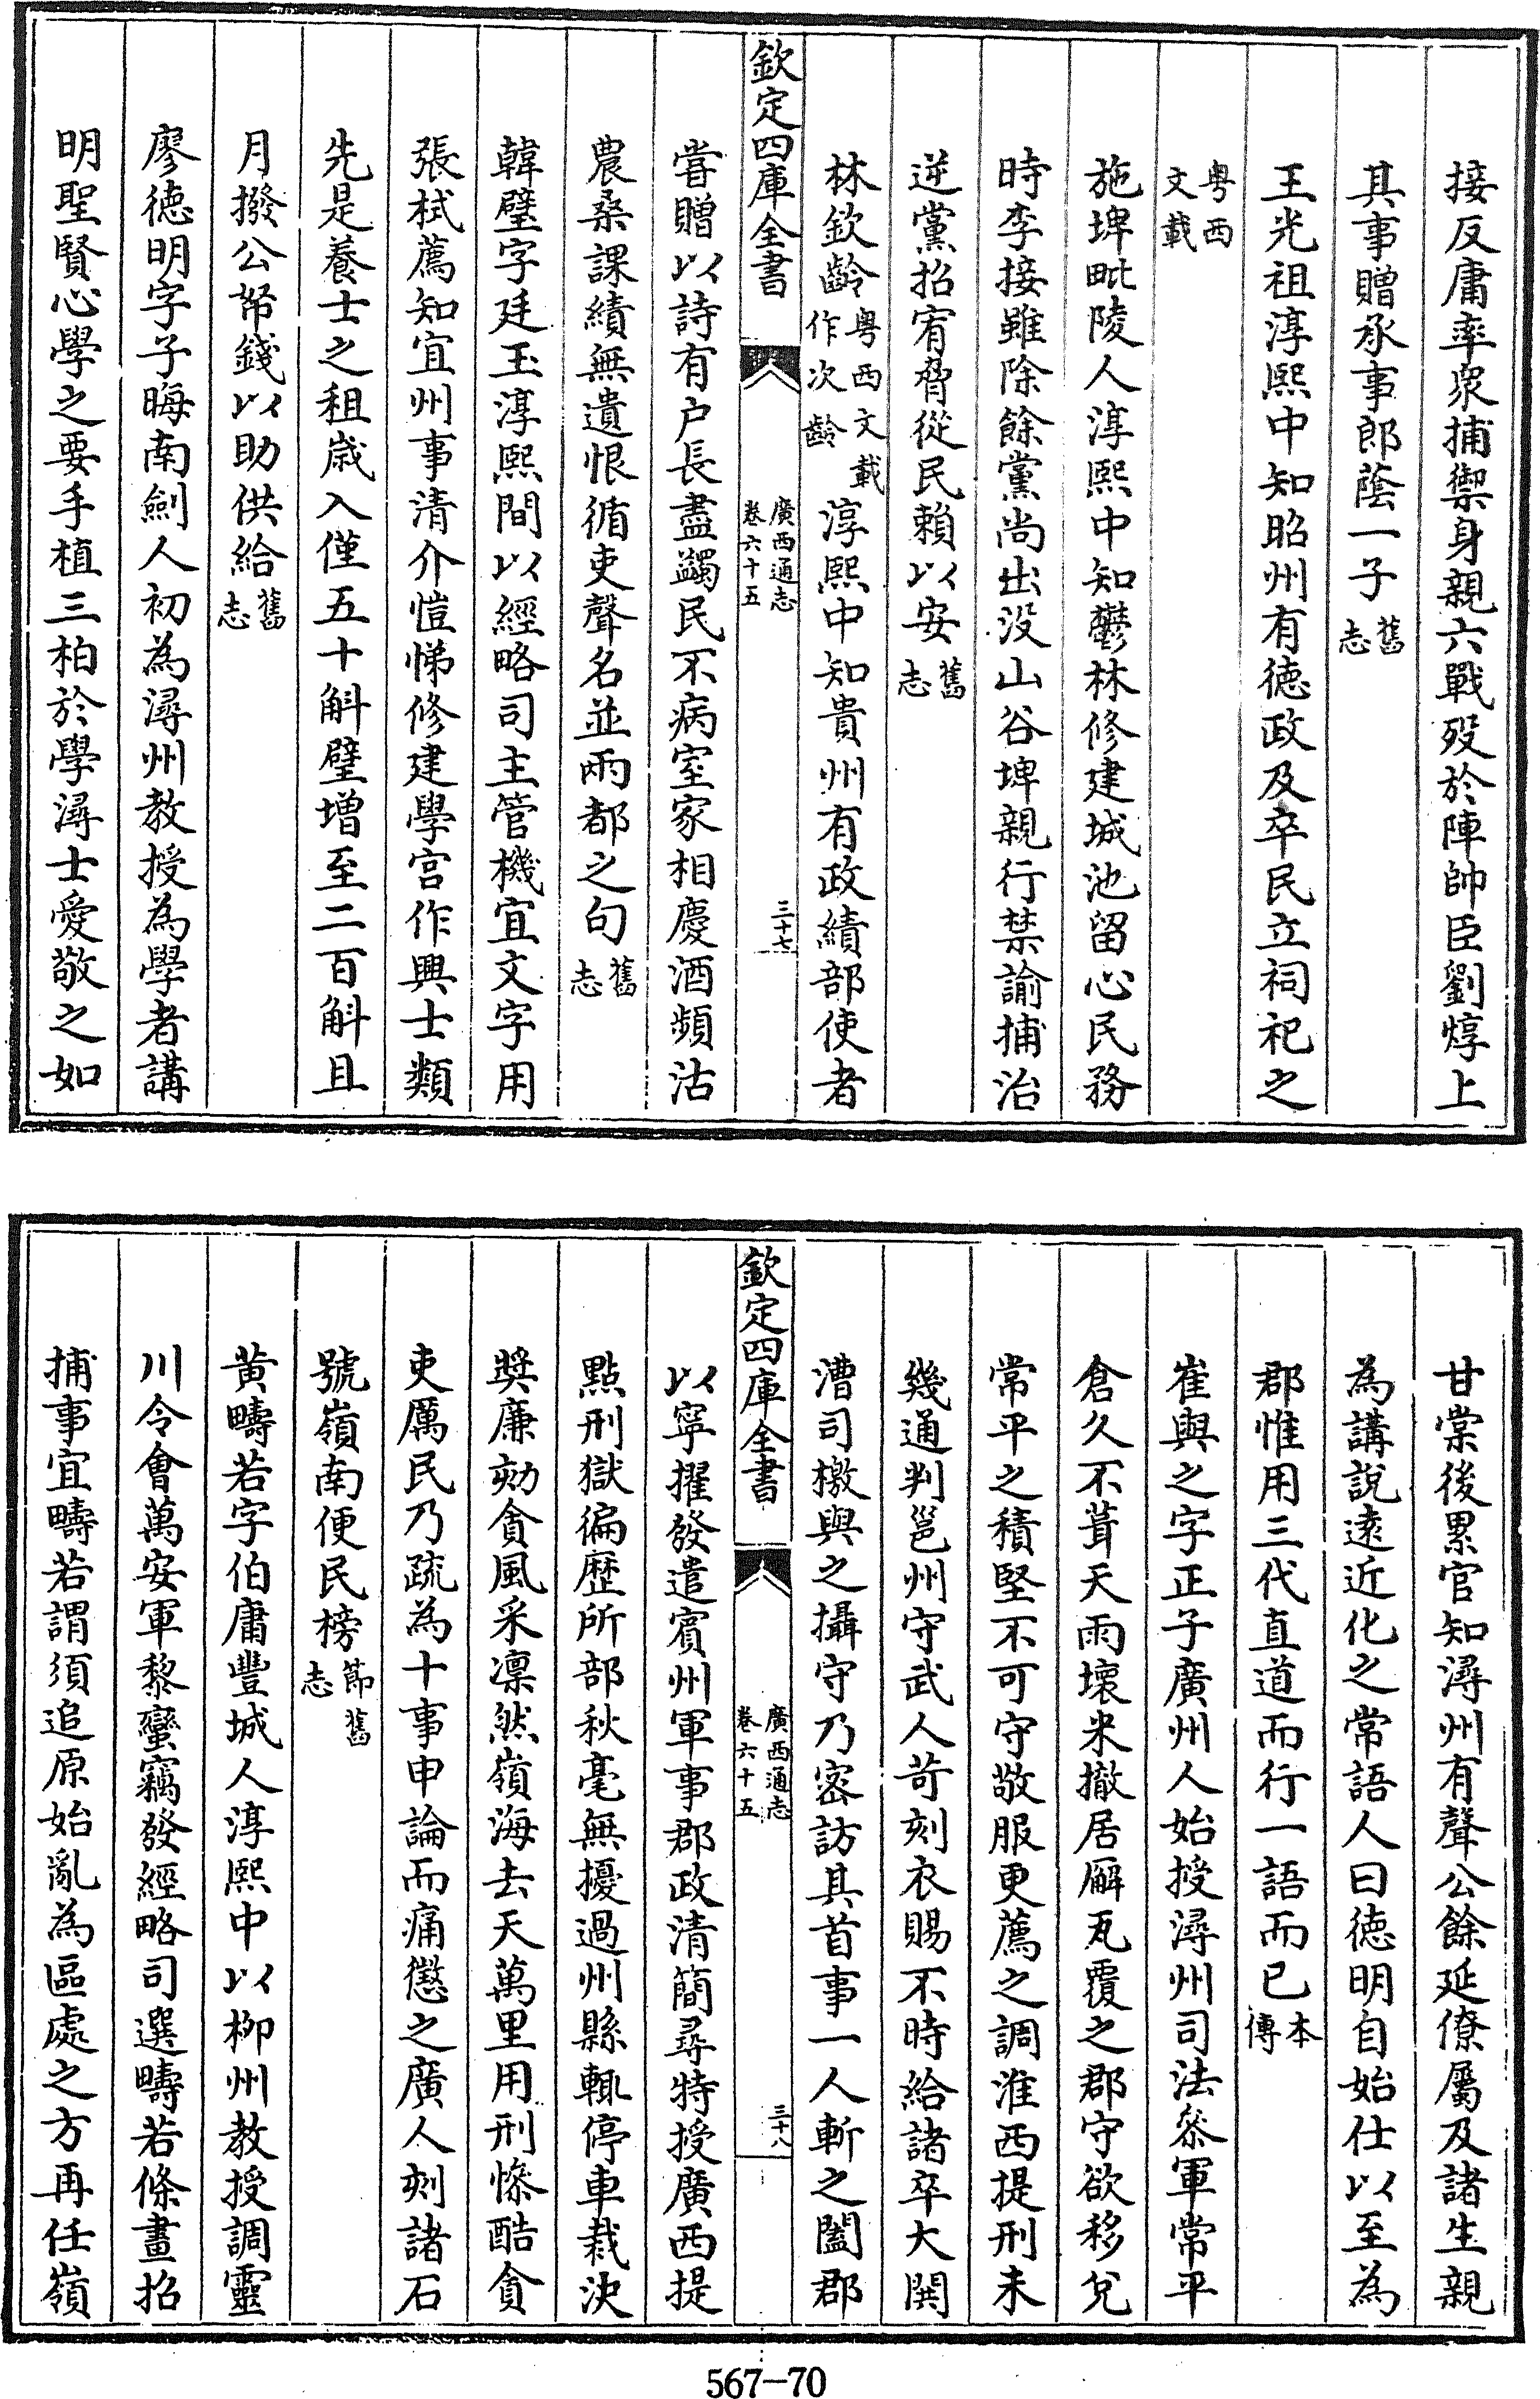 接反庸率衆捕禦身親六戰殁於陣帥臣劉焞上
其事贈承事郎蔭一子舊志
王光祖淳熙中知昭州有徳政及卒民立祠祀之
粤西文載
施埤毗陵人淳熙中知鬱林修建城池留心民務
時李接雖除餘黨尚出没山谷埤親行禁諭捕治
逆黨招宥脅從民賴以安舊志
林欽齡粤西文載作次齡淳熙中知貴州有政績部使者
欽定四庫全書
廣西通志
卷六十五
三十七
嘗贈以詩有户長盡蠲民不病室家相慶酒頻沽
農桑課績無遺恨循吏聲名並兩都之句舊志
韓璧字廷玉淳熙間以經略司主管機宜文字用
張栻薦知宜州事清介愷悌修建學宫作興士類
先是養士之租歳入僅五十斛璧增至二百斛且
月撥公帑錢以助供給舊志
廖徳明字子晦南劍人初為潯州教授為學者講
明聖賢心學之要手植三柏於學潯士愛敬之如
甘棠後累官知潯州有聲公餘延僚屬及諸生親
為講說逺近化之常語人曰徳明自始仕以至為
郡惟用三代直道而行一語而已本傳
崔與之字正子廣州人始授潯州司法叅軍常平
倉久不葺天雨壞米撤居廨瓦覆之郡守欲移兌
常平之積堅不可守敬服更薦之調淮西提刑未
幾通判邕州守武人苛刻衣賜不時給諸卒大閧
漕司檄與之攝守乃密訪其首事一人斬之闔郡
欽定四庫全書
廣西通志
卷六十五
三十八
以寧擢發遣賓州軍事郡政清簡尋特授廣西提
點刑獄徧歴所部秋毫無擾過州縣輒停車裁決
奬廉劾貪風采凛然嶺海去天萬里用刑慘酷貪
吏厲民乃疏為十事申論而痛懲之廣人刻諸石
號嶺南便民榜節舊志
黄疇若字伯庸豐城人淳熙中以柳州教授調靈
川令會萬安軍黎蠻竊發經略司選疇若條畫招
捕事宜疇若謂須追原始亂為區處之方再任嶺
567-70